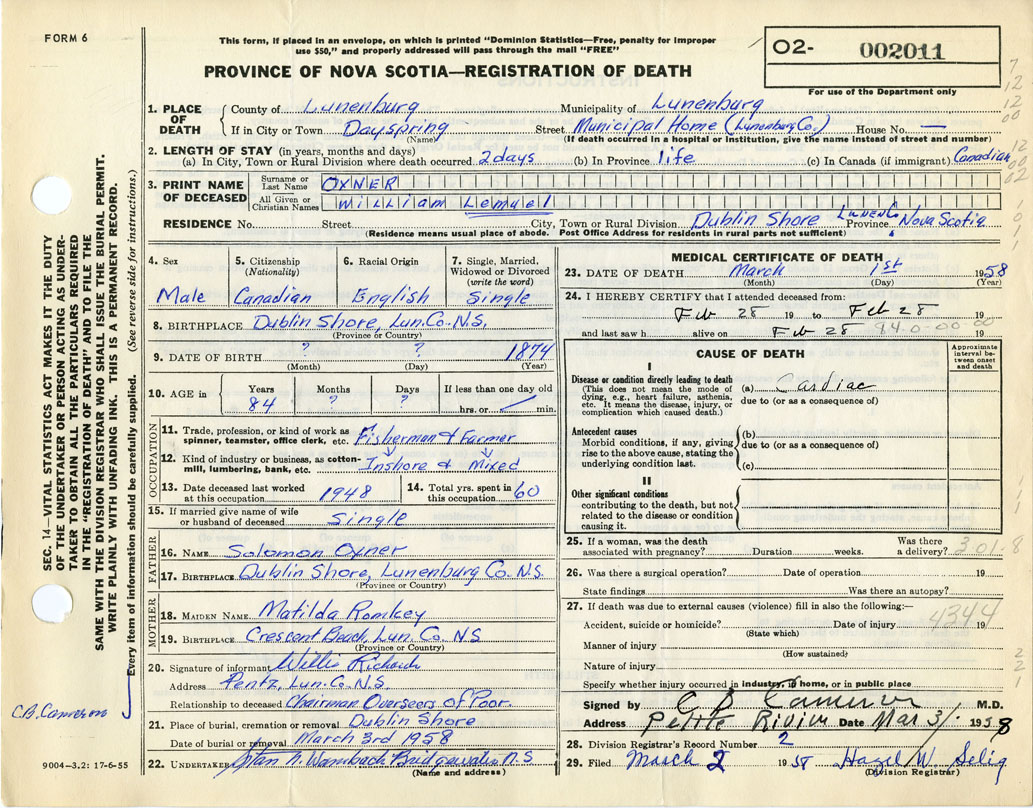 FORM 6
This form, if placed in an envelope, on which is printed "Dominion Statistics—Free, penalty for improper
use $50," and properly addressed will pass through the mail "FREE"
PROVINCE OF NOVA SCOTIA—REGISTRATION OF DEATH
02- 002011
For use of the Department only
SEC. 14—VITAL STATISTICS ACT MAKES IT THE DUTY
OF THE UNDERTAKER OR PERSON ACTING AS UNDER-
TAKER TO OBTAIN ALL THE PARTICULARS REQUIRED
IN THE "REGISTRATION OF DEATH" AND TO FILE THE
SAME WITH THE DIVISION REGISTRAR WHO SHALL ISSUE THE BURIAL PERMIT.
WRITE PLAINLY WITH UNFADING INK. THIS IS A PERMANENT RECORD.
Every item of information should be carefully supplied. (See reverse side for instructions.)
C.B. Cameron
9004-3.2: 17-6-55
1. PLACE OF DEATH
County of Lunenburg Municipality of Lunenburg
If in City or Town Dayspring Street Municipal Home (Lunenburg Co.) House No. —
(Name) (If death occurred in a hospital or institution, give its name instead of street and number)
2. LENGTH OF STAY (in years, months and days)
(a) In City, Town or Rural Division where death occurred 2 days (b) In Province life (c) In Canada (if immigrant) Canadian
3. PRINT NAME OF DECEASED
Surname or Last Name OXNER
All Given or Christian Names William Lemuel
RESIDENCE No. Street City, Town or Rural Division Dublin Shore Lunen Co Province Nova Scotia
(Residence means usual place of abode. Post Office Address for residents in rural parts not sufficient)
4. Sex
Male
5. Citizenship
(Nationality)
Canadian
6. Racial Origin
English
7. Single, Married,
Widowed or Divorced
(write the word)
Single
8. BIRTHPLACE Dublin Shore, Lun. Co. N.S.
(Province or Country)
9. DATE OF BIRTH ? ? 1874
(Month) (Day) (Year)
10. AGE in Years Months Days If less than one day old
84 ? ? hrs. or min.
OCCUPATION
11. Trade, profession, or kind of work as
spinner, teamster, office clerk, etc. Fisherman & Farmer
12. Kind of industry or business, as cotton-
mill, lumbering, bank, etc. Inshore & Mixed
13. Date deceased last worked
at this occupation 1948
14. Total yrs. spent in
this occupation 60
15. If married give name of wife
or husband of deceased Single
FATHER
16. NAME Solomon Oxner
17. BIRTHPLACE Dublin Shore, Lunenburg Co. N.S.
(Province or Country)
MOTHER
18. MAIDEN NAME Matilda Romkey
19. BIRTHPLACE Crescent Beach, Lun. Co. N.S
(Province or Country)
20. Signature of informant Willis Richard
Address Pentz, Lun. Co. N.S.
Relationship to deceased Chairman Overseers of Poor.
21. Place of burial, cremation or removal Dublin Shore
Date of burial or removal March 3rd 1958
22. UNDERTAKER Stan N. Wambach Bridgewater, N.S
(Name and address)
MEDICAL CERTIFICATE OF DEATH
23. DATE OF DEATH March 1st 1958
(Month) (Day) (Year)
24. I HEREBY CERTIFY that I attended deceased from:
Feb 28 19 to Feb 28 19
and last saw h alive on Feb 28 84-0-00-00 19
CAUSE OF DEATH
Approximate
interval be-
tween onset
and death
I
Disease or condition directly leading to death
(This does not mean the mode of
dying, e.g., heart failure, asthenia,
etc. It means the disease, injury, or
complication which caused death.)
(a) Cardiac
due to (or as a consequence of)
Antecedent causes
Morbid conditions, if any, giving
rise to the above cause, stating the
underlying condition last.
(b)
due to (or as a consequence of)
(c)
II
Other significant conditions
contributing to the death, but not
related to the disease or condition
causing it.
25. If a woman, was the death
associated with pregnancy? Duration weeks. Was there
a delivery? 301-8
26. Was there a surgical operation? Date of operation 19
State findings Was there an autopsy?
27. If death was due to external causes (violence) fill in also the following:—
4344
Accident, suicide or homicide? Date of injury 19
(State which)
Manner of injury
(How sustained)
Nature of injury
Specify whether injury occurred in industry, in home, or in public place
Signed by C B Cameron M.D.
Address Petite Riviere Date Mar 3/ 1958
28. Division Registrar's Record Number 2
29. Filed March 2 1958 Hazel W. Selig
(Division Registrar)